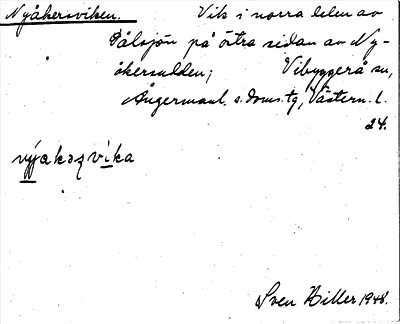 Nyåkersviken. Vik i norra delen av
Pålsjön på östra sidan av Ny-
åkersudden; Vibyggerå sn,
Ångermanl. s. doms. tg, Västern. l.
24.
nýjakəʒvìka
Sven Hiller 1948.